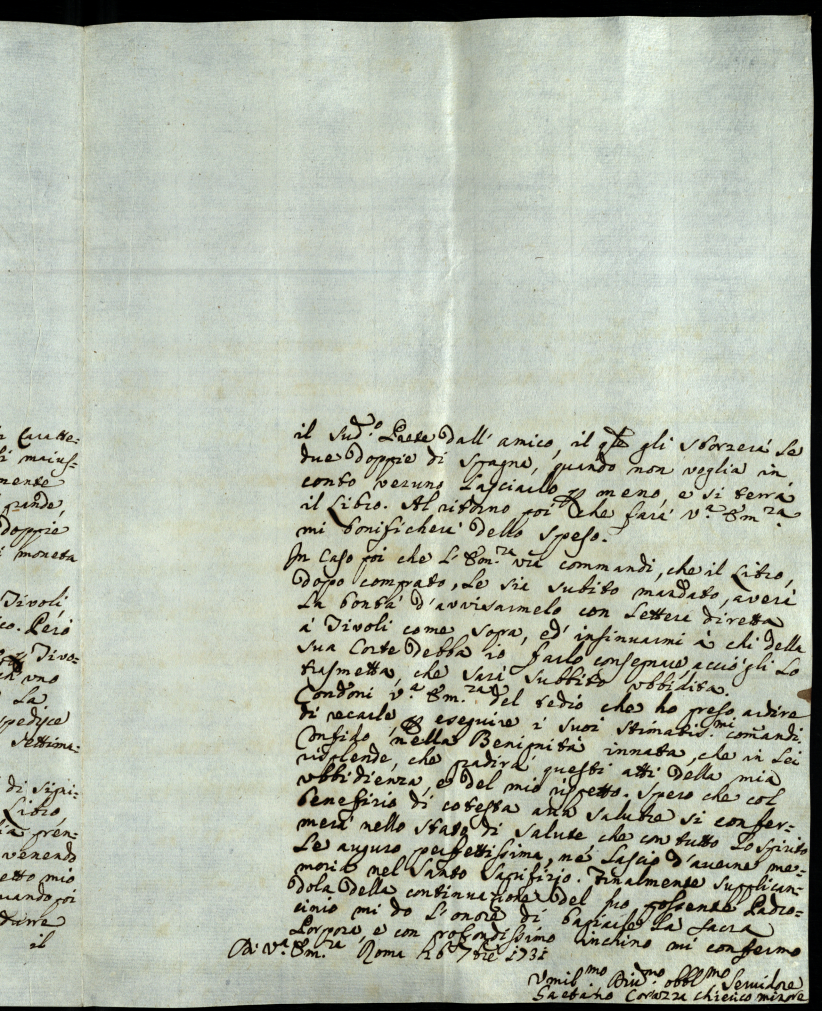 Caratte=
di maius=
mente
grande,
doppie
moneta
Tivoli,
co. Però
Tivo=
uno
La
spedisce
settima=
di sipi=
Libro,
fren=
venendo
etto mio
quando poi
durre
il
il Sud.º Paese dall' amico, il qle gli sborzerá le
due doppie di Spagna, quando non voglia in
conto veruno Lasciarlo p meno, e si terrá
il Libro. Al ritorno poi che fará V.ª Em.za
mi bonificherá dello speso.
In caso poi che L' Em.za vra commandi, che il Libro,
dopo comprato, Le sia subito mandato, averá
La bontá d'avvisarmelo con Lettera diretta
á Tivoli come sopra, ed insinuarmi á chi della
sua Corte debba io farlo consegnare, acció gli Lo
trasmetta, che sará subbito ubbidita.
Condoni V.ª Em.za del tedio che ho preso ardire
di recarle, p eseguire i suoi stimatis.mi comandi.
Confido nella Benignitá innata, che in Lei
risplende, che gradirá questi atti della mia
ubbidienza, e del mio rispetto. Spero che col
benefizio di cotesta aria salubre si confer=
merá nello stato di salute che con tutto Lo spirito
Le auguro perfettissima, né Lascio d'averne me=
moria nel Santo Sacrifizio. Finalmente supplican=
dola della continuazione del suo possente Padro=
cinio mi do L'onore di baciarle La Sacra
Porpora, e con profondissimo inchino mi confermo
Di V.ª Em.za Roma li 6 7bre 1731
Umil.mo Div.mo obbl.mo Servidore
Gaetano Corazza chierico minore